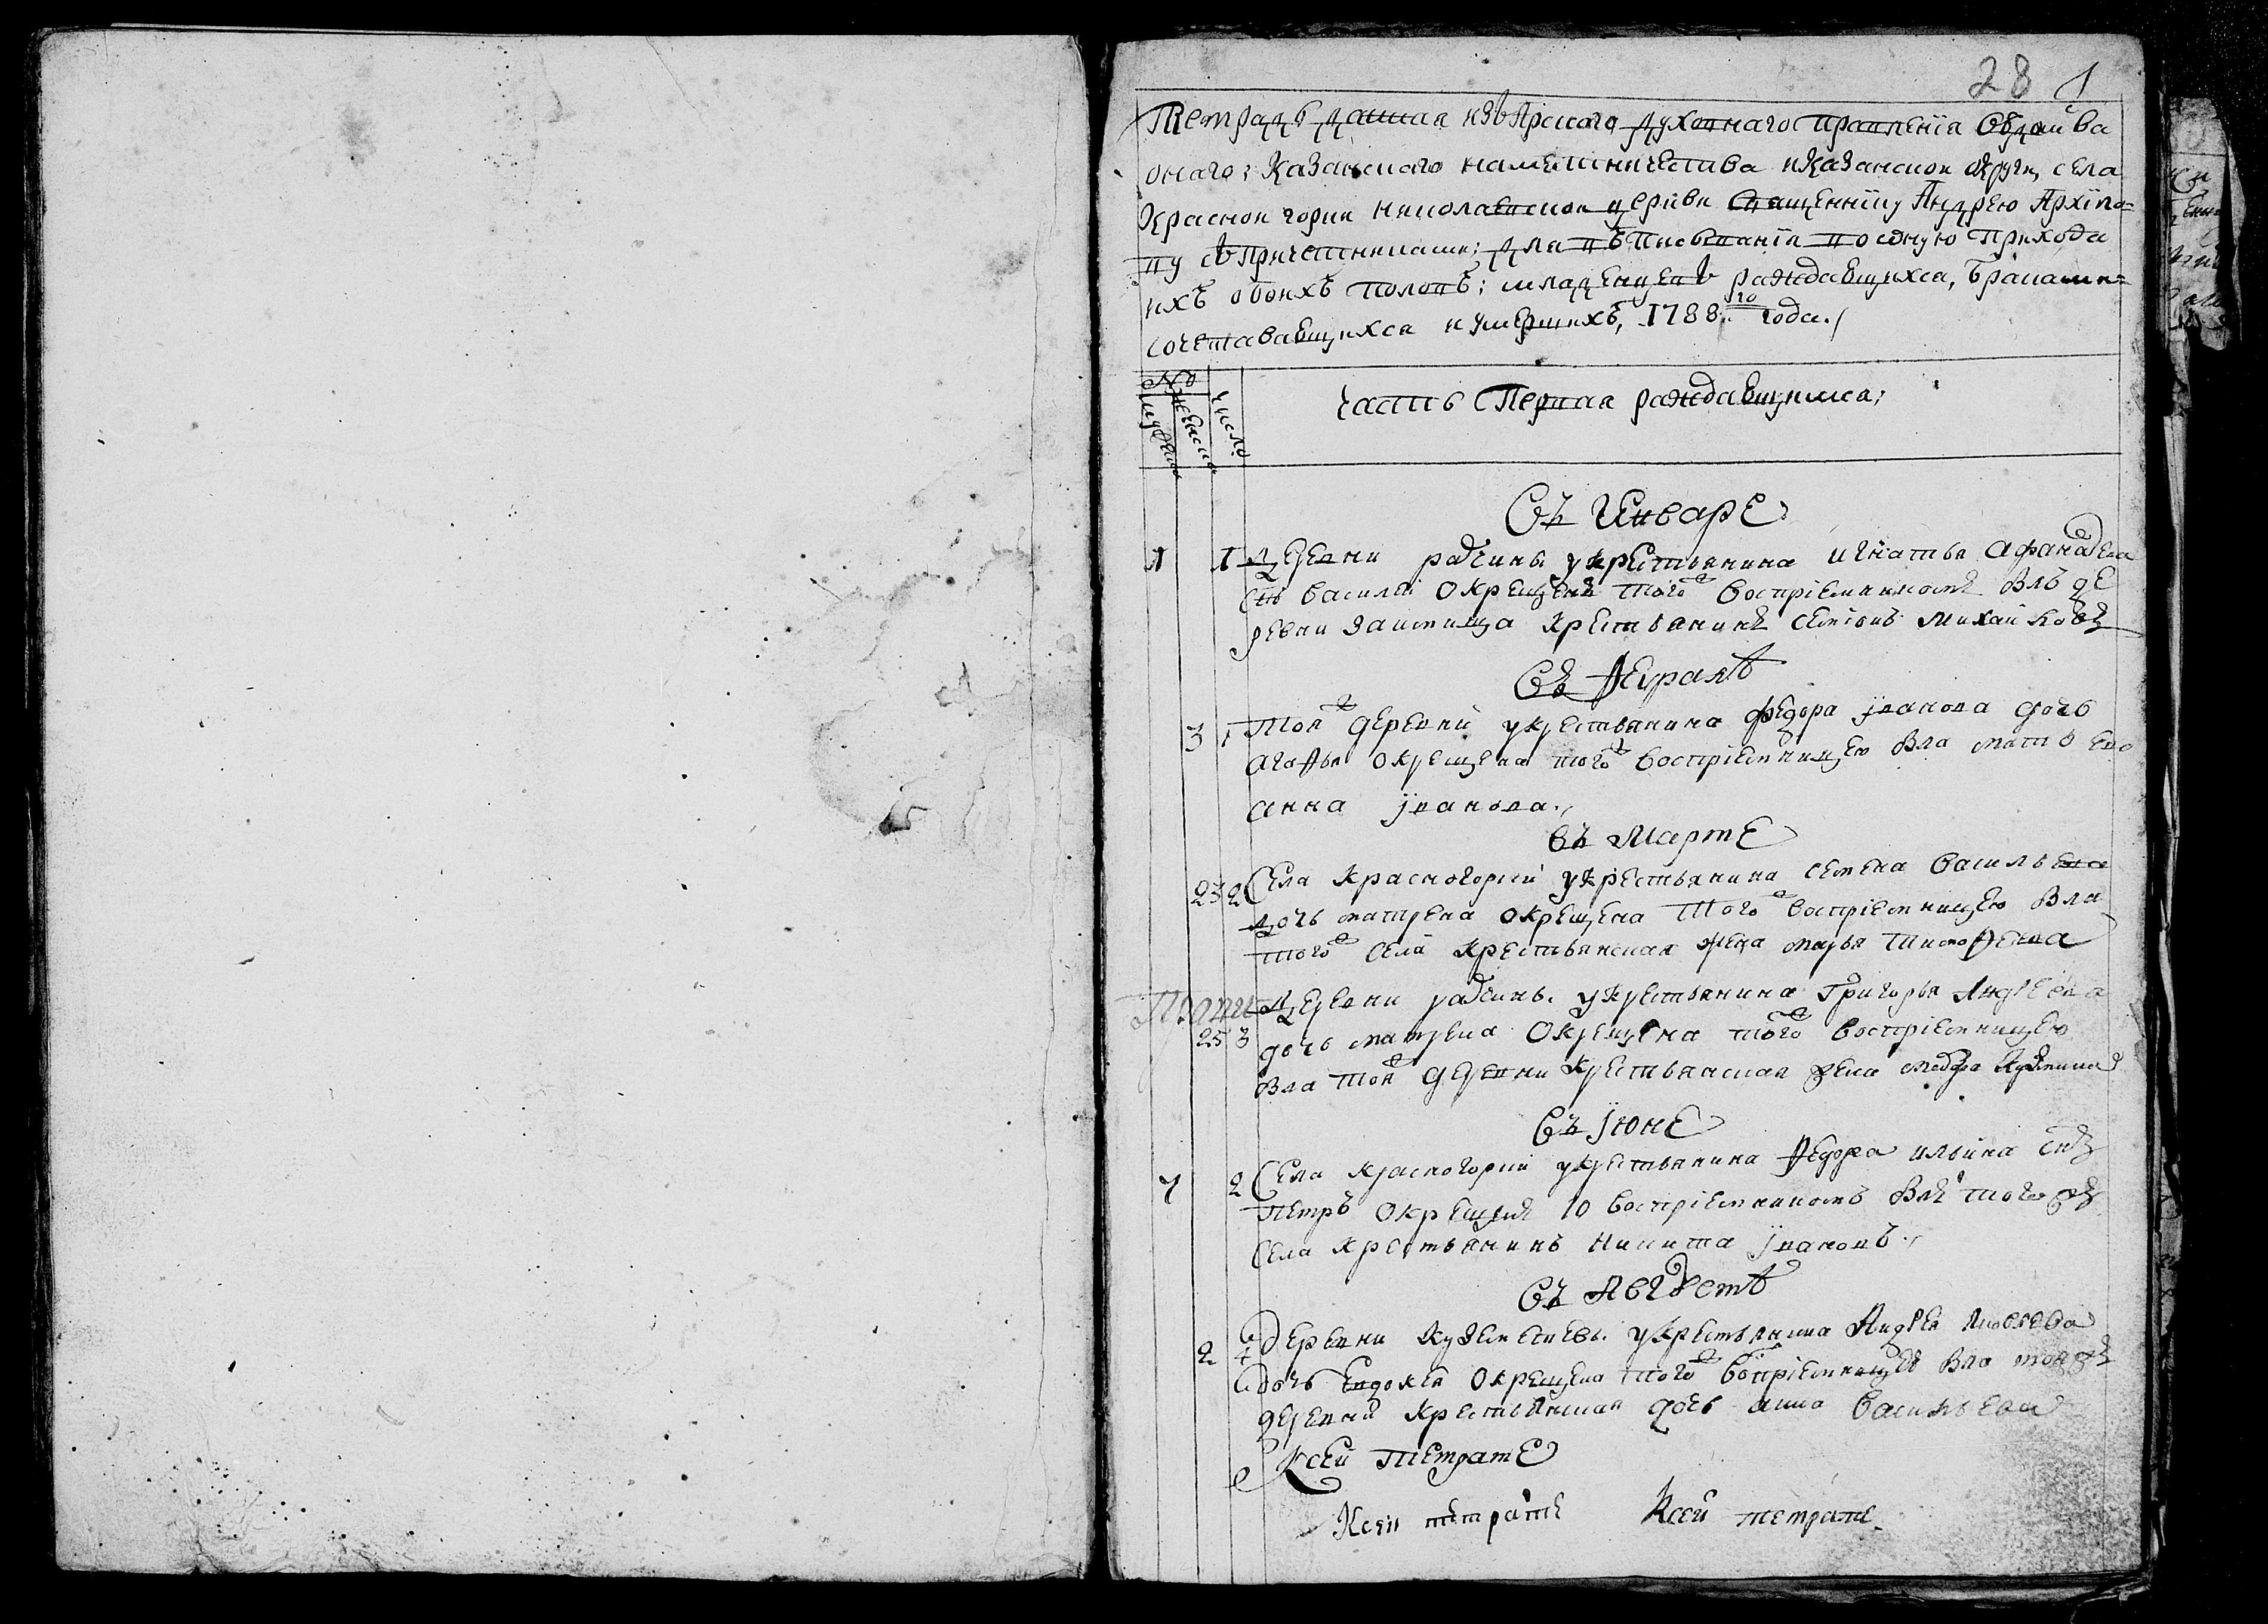 28 1
Тетрадь данная изъ Арскаго духовнаго правленiя вѣдомства
онаго; Казанскаго наместничества и Казанскои округи, села
Краснои горки Николаевскои церкви священнику Андрею Архипо=
ву съ причетниками; для въписыванiя по оную прихода
ихъ обоихъ половъ; младенцевъ раждавшихся, браками=
сочетававшихся и умершихъ, 1788го года./
№ Число
мужеска женска
Часть Первая раждавшимся;
Въ Генваре
1 1 Деревни у крестьянина Игнатья Афанасьева
снъ Василей окрещенъ того ж воспрiемникомъ былъ де
ревни Займища крестьянинъ Семiонъ Михайловъ
Въ Февралѣ
3 1 Той ж деревни у крестьянина Федора Iванова дочь
Агафья окрещена того ж воспрiемницею была мать ево
Анна Iванова.,
въ Марте
23 2 Села Красногорки у крестьянина Семена Васильева
дочь Матрена окрещена того ж воспрiемницею была
того ж села крестьянская жена Марья Тимофеева
25 3 Деревни у крестьянина Григорья Андреева
дочь Матрена окрещена того ж воспрiемницею
была той ж деревни крестьянская жена
Въ Iюне
7 2 Села Красногорки у крестьянина Федора Ильина снъ
Петръ окрещенъ 10 воспрiемникомъ былъ того ж
села крестьянинъ Никита Iвановъ.,
Въ Августѣ
2 4 Деревни у крестьянина Андрея Яковлева
дочь Евдокея окрещена того ж воспрiемницею была тойже
деревни крестьянская дочь Анна Васильева
К сей тетрате
К сей тетрате К сей тетрате